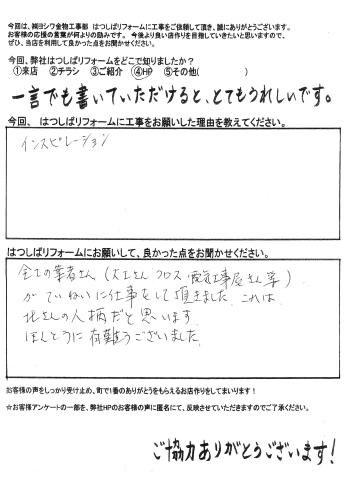 今回は、㈱ヨシワ金物工事部 はつしばリフォームに工事をご依頼して頂き、誠にありがとうございます。
お客様の応援の言葉が何よりの励みです。 今後より良い店作りを目指していきたいと思いますので、
ぜひ、当店を利用して良かった点をお聞かせください。
今回、弊社はつしばリフォームをどこで知りましたか？
①来店 ②チラシ ③ご紹介 ④HP ⑤その他( )
一言でも書いていただけると、とてもうれしいです。
今回、 はつしばリフォームに工事をお願いした理由を教えてください。
インスピレーション
はつしばリフォームにお願いして、良かった点をお聞かせください。
全ての業者さん（大工さん クロス・電気工事屋さん等）
がていねいに仕事をして頂きました これは
北さんの人柄だと思います
ほんとうに有難うございました
お客様の声をしっかり受け止め、町で1番のありがとうをもらえるお店作りをしてまいります！
☆お客様アンケートの一部を、弊社HPのお客様の声に匿名にて、反映させていただきますのでご了承ください。
ご協力ありがとうございます！